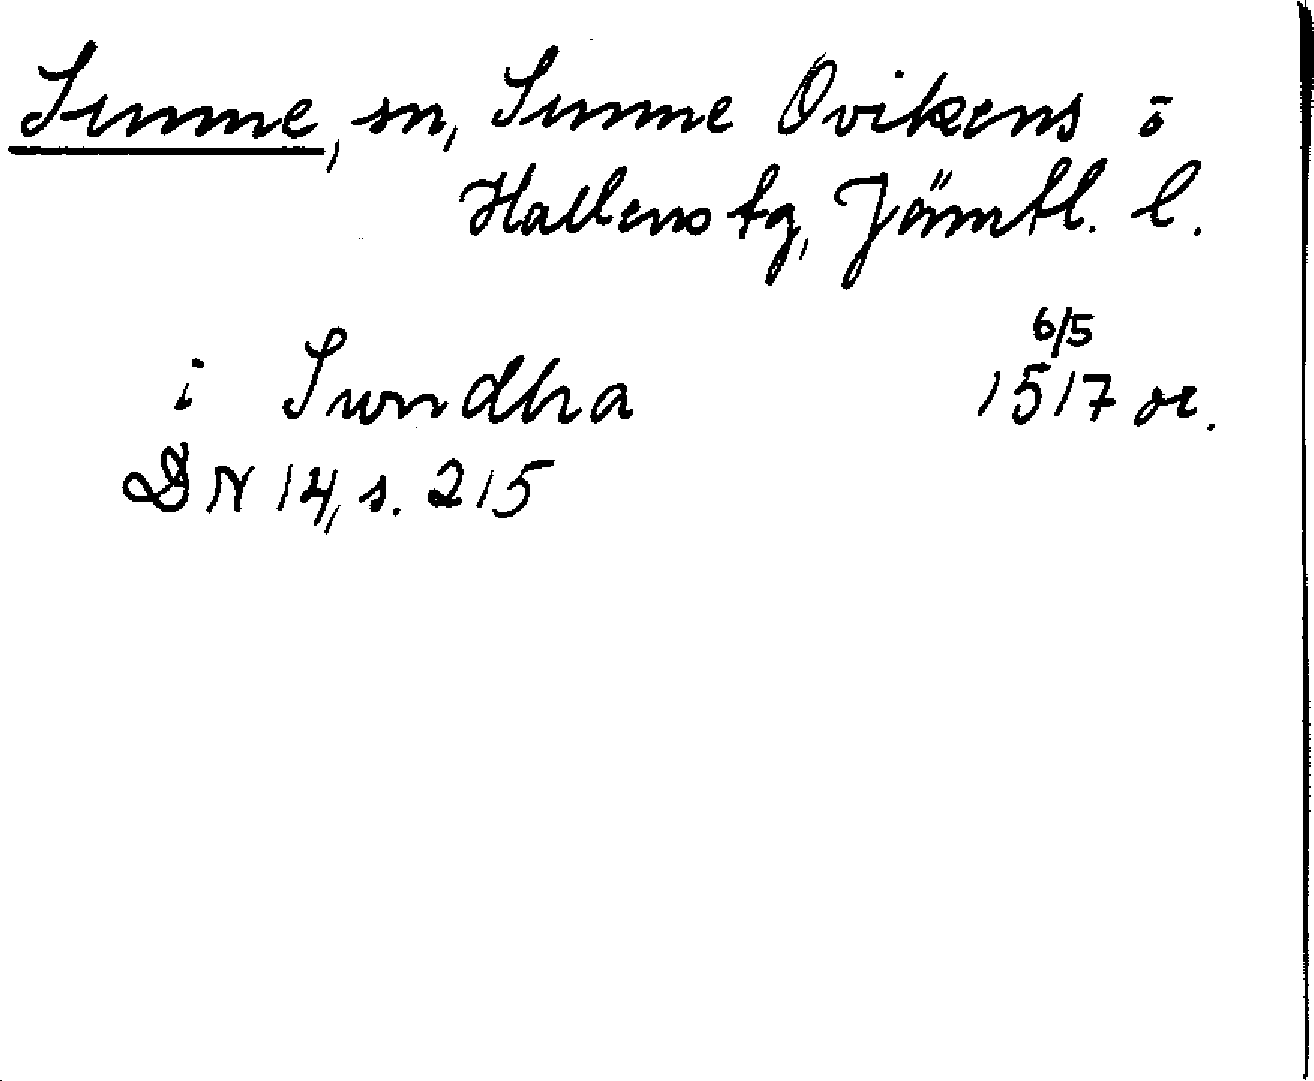 Sunne, sn, Sunne Ovikens o
Hallens tg, Jämtl. l.
i Sundha 6/5 1517 or.
DN 14, s. 215